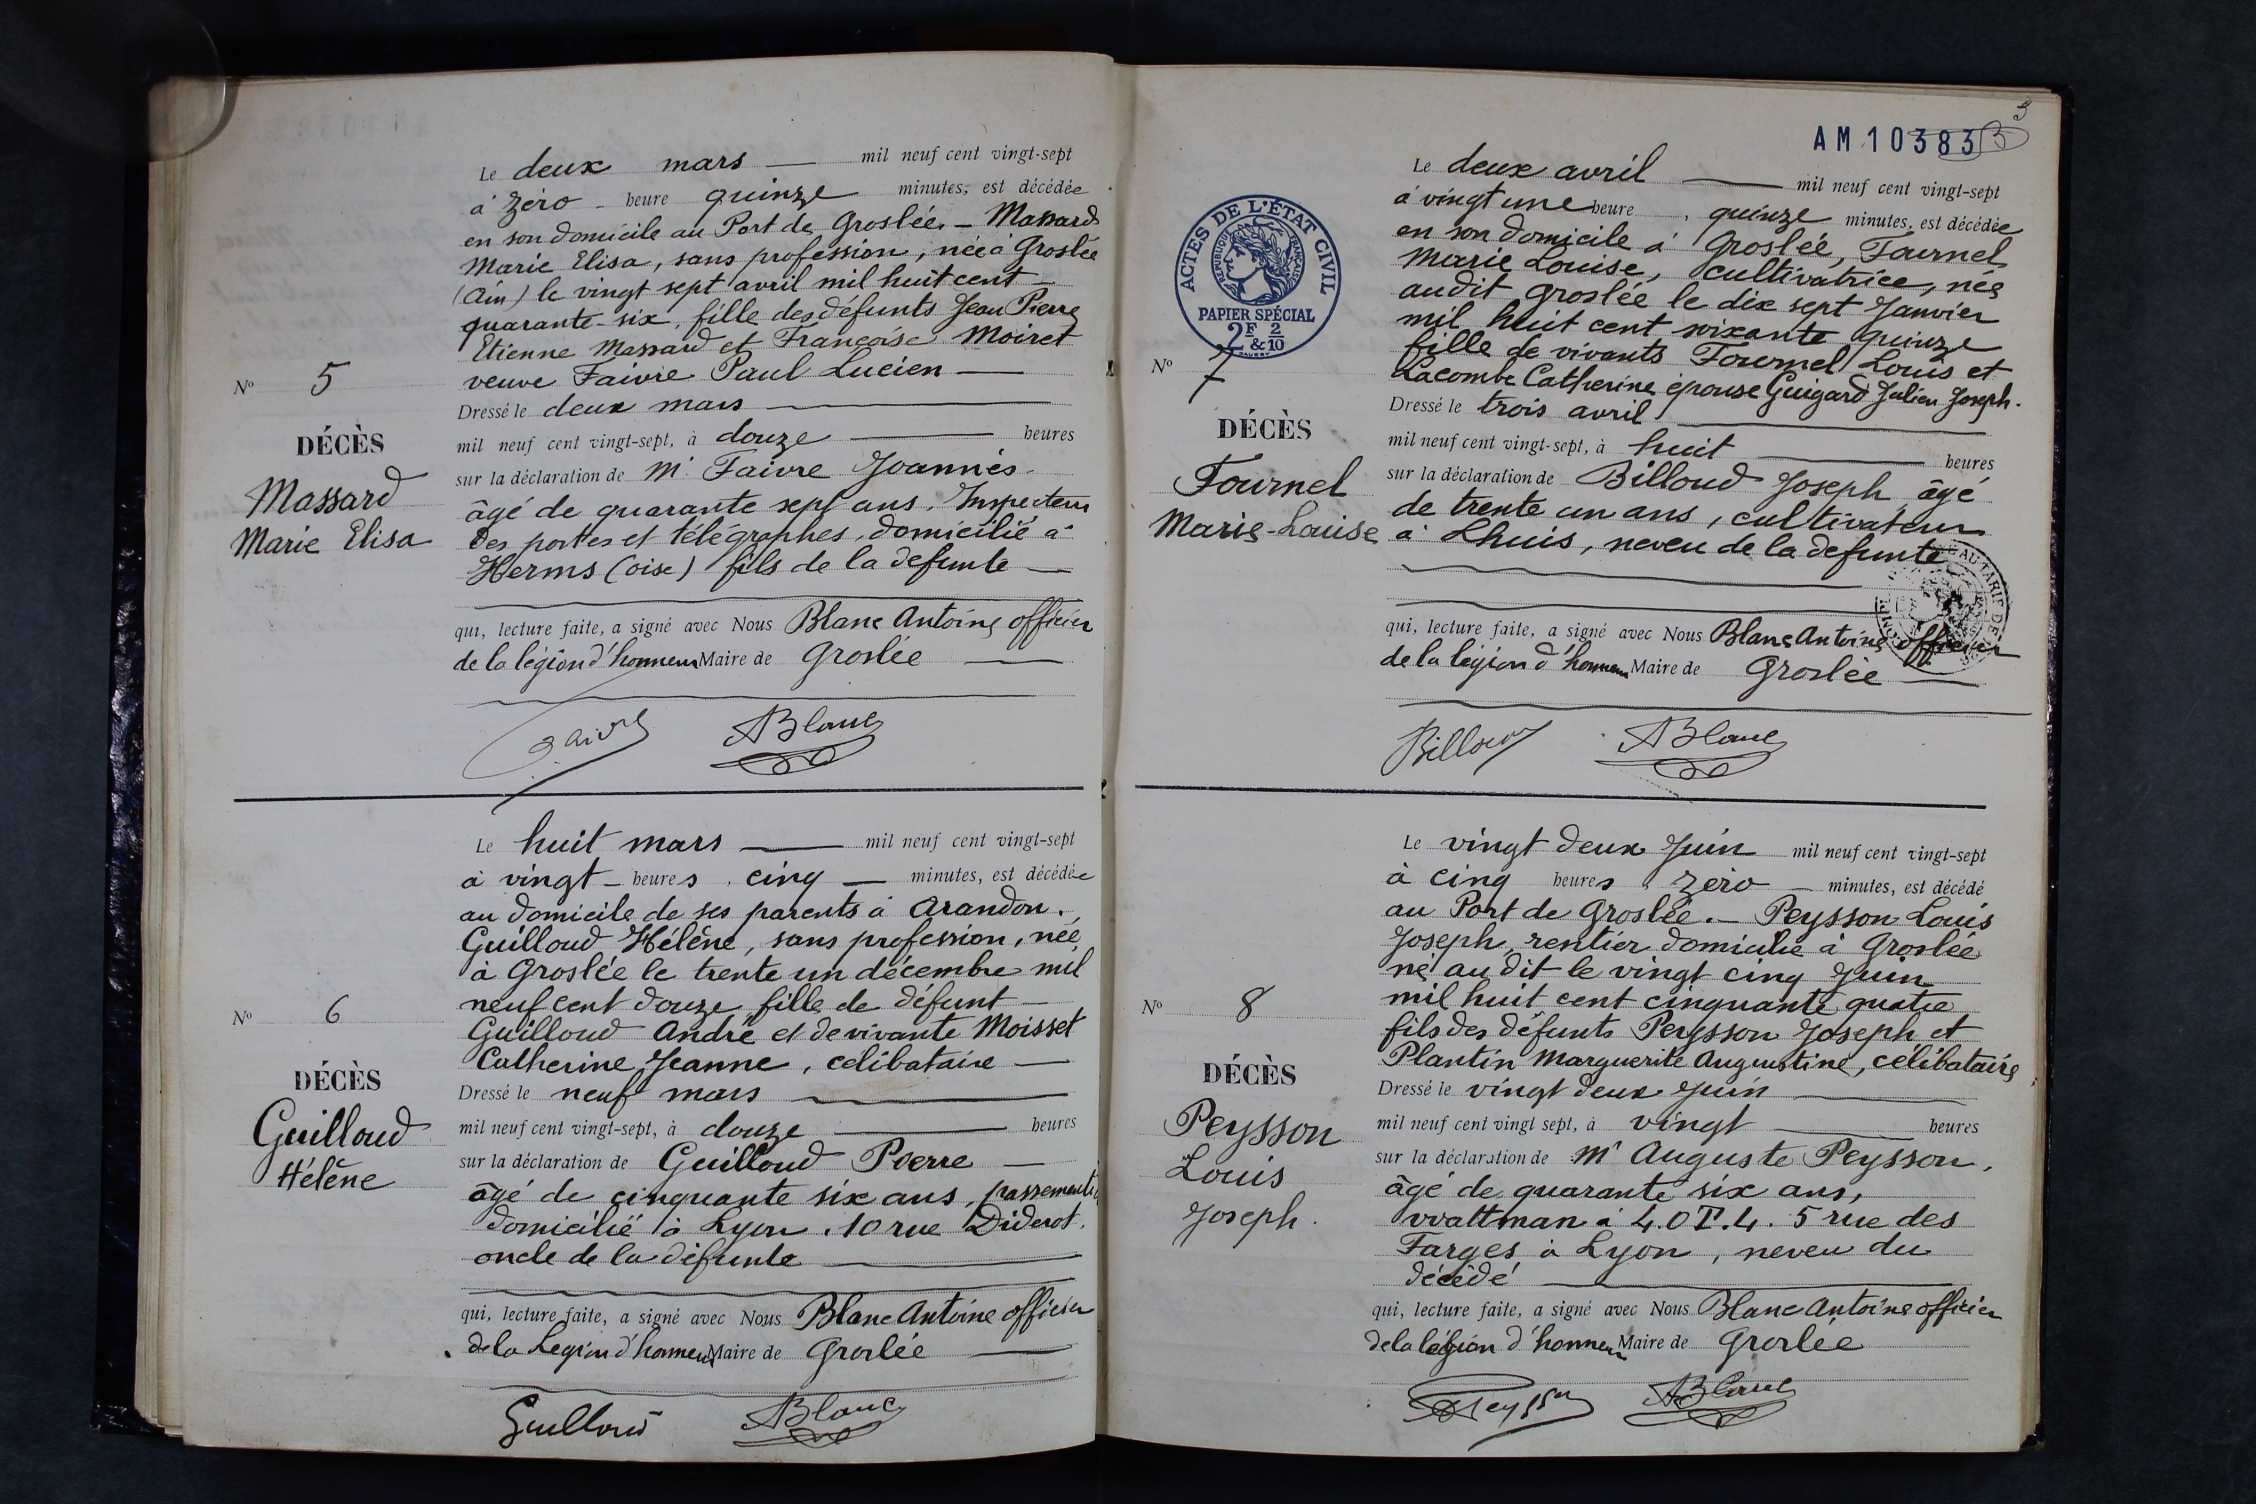 Le deux mars — mil neuf cent vingt-sept
à zéro - heure quinze minutes, est décédée
en son domicile au Port de Groslée. - Massard
Marie Elisa, sans profession, née à Groslée
(Ain) le vingt sept avril mil huit cent -
quarante-six, fille des défunts Jean Pierre
Etienne Massard et Françoise Moiret
veuve Faivre Paul Lucien —
N° 5
DÉCÈS
Massard
Marie Elisa
Dressé le deux mars —
mil neuf cent vingt-sept, à douze — heures
sur la déclaration de Mr Faivre Joannès
âgé de quarante sept ans. Inspecteur
des postes et télégraphes, domicilié à
Herms (oise) fils de la défunte —
qui, lecture faite, a signé avec Nous Blanc Antoine officier
de la légion d'honneur Maire de Groslée —
Faivre ABlanc
Le huit mars — mil neuf cent vingt-sept
à vingt - heures cinq — minutes, est décédée
au domicile de ses parents à Arandon.
Guilloud Hélène, sans profession, née
à Groslée le trente un décembre mil
neuf cent douze fille de défunt —
Guilloud André et de vivante Moisset
Catherine Jeanne, célibataire —
N° 6
DÉCÈS
Guilloud
Hélène
Dressé le neuf mars —
mil neuf cent vingt-sept, à douze — heures
sur la déclaration de Guilloud Pierre —
âgé de cinquante six ans, passementier
domicilié à Lyon. 10 rue Diderot.
oncle de la défunte —
qui, lecture faite, a signé avec Nous Blanc Antoine officier
de la Légion d'honneur Maire de Groslée —
Guilloud ABlanc
3
AM 10383 3
ACTES DE L'ÉTAT CIVIL
RÉPUBLIQUE FRANÇAISE
PAPIER SPÉCIAL
2F & 2/10
Le deux avril — mil neuf cent vingt-sept
à vingt une heure quinze minutes, est décédée
en son domicile à Groslée, Fournel
Marie Louise, cultivatrice, née
audit Groslée le dix sept Janvier
mil huit cent soixante quinze
fille de vivants Fournel Louis et
Lacombe Catherine épouse Guigard Julien Joseph.
N° 7
DÉCÈS
Fournel
Marie-Louise
Dressé le trois avril —
mil neuf cent vingt-sept, à huit — heures
sur la déclaration de Billoud Joseph âgé
de trente un ans, cultivateur
à Lhuis, neveu de la défunte
qui, lecture faite, a signé avec Nous Blanc Antoine officier
de la légion d'honneur Maire de Groslée —
Billoud ABlanc
Le vingt deux Juin mil neuf cent vingt-sept
à cinq heures zéro — minutes, est décédé
au Port de Groslée. - Peysson Louis
Joseph, rentier domicilié à Groslée
né au dit le vingt cinq Juin
mil huit cent cinquante quatre
fils des défunts Peysson Joseph et
Plantin Marguerite Augustine, célibataire
N° 8
DÉCÈS
Peysson
Louis
Joseph.
Dressé le vingt deux Juin —
mil neuf cent vingt sept, à vingt — heures
sur la déclaration de Mr Auguste Peysson,
âgé de quarante six ans,
wattman à l.O.T.L. 5 rue des
Farges à Lyon, neveu du
décédé —
qui, lecture faite, a signé avec Nous Blanc Antoine officier
de la légion d'honneur Maire de Groslée
Peysson ABlanc